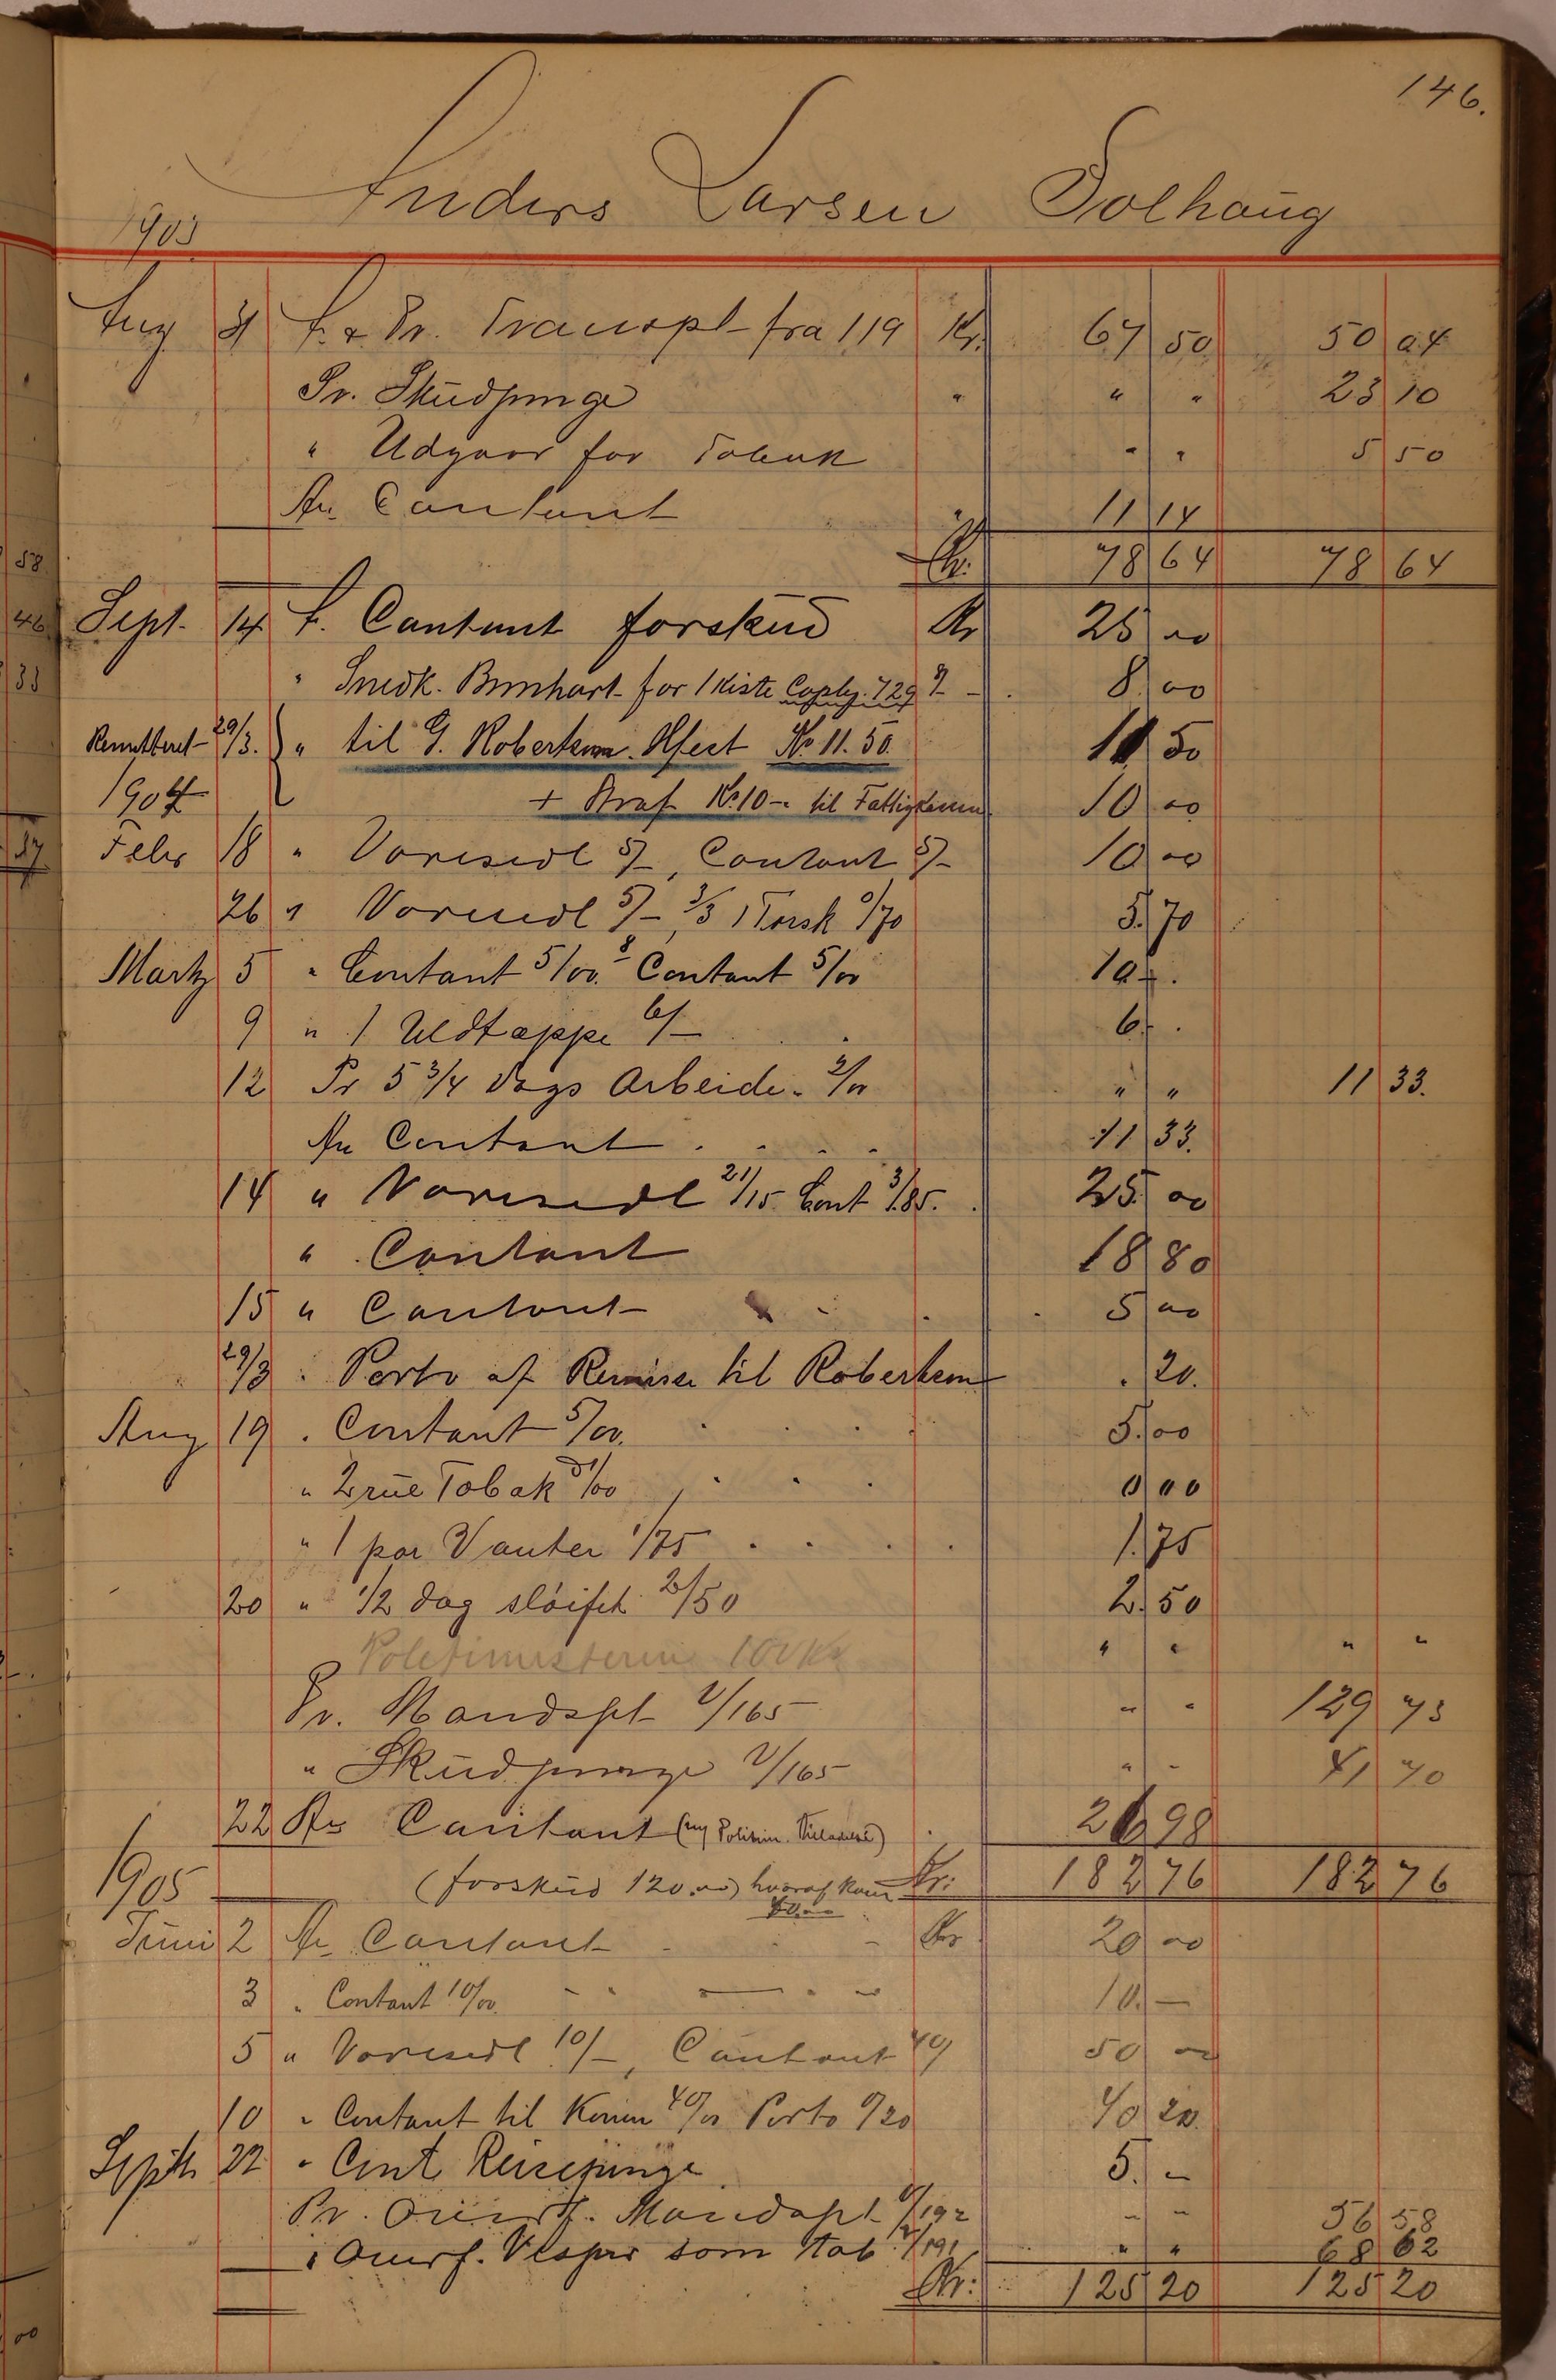 146.
Anders Larsen Solhaug
1903
Aug 31 A. & Pr. Transpt fra 119 Kr. 67 50 50 04
Pr. Skudpenge " " " 23 10
" Udgaar for Tobak " " 5 50
An Contant " 11 14
Kr. 78 64 78 64
Sept. 14 A. Contant forskud Kr 25 00
" Snedk. for 1 Kiste 8 00
Remitteret 29/3. " til G. Robertsen. Kr. 11.50 11 50
1904 + Straf Kr. 10 - til 10 00
Febr 18 " Varesedl 5/-, Contant 5/- 10 00
26 " Varesedl 5/-, 3/3 1 Torsk 0/70 5. 70
Marts 5 " Contant 5/00. 8 Contant 5/00 10 - .
9 " 1 Uldtæppe 6/- 6 - .
12 Pr 5 3/4 Dags Arbeide 2/00 " " 11 33.
An Contant . . . . 11 33.
14 " Varesedl 21/15 Cont 3/85. 25. 00
" Contant 18 80
15 " Contant - . 5 00
29/3 " Porto af Remisse til Robertsen . 20.
Aug 19 . Contant 5/00. . . . 5. 00
" 2 rul Tobak /00 0 00
" 1 par Vanter 1/75 . . . . 1. 75
20 " 1/2 dag sløifet 2/50 2. 50
Politimesteren 100 Kr " " " "
Pr. Mandspt V/165 " " 129 73
" Skudpenge V/165 " " 41 70
22 An Contant 26 98
1905 (forskud 120.00) hvoraf Kr: 182 76 182 76
Juni 2 An Contant . . - Kr 20 00
3 " Contant 10/00. 10. -
5 " Varesedl 10/-, Contant 40/ 50 00
10 " Contant til Konen 40/00 Porto 0/20 40 20
Septb 22 " Cont Reisepenge 5. -
Pr. Overf. Mandspt V/192 " " 56 58
" Overf. Vesper som V/191 " " 68 62
Kr: 125 20 125 20